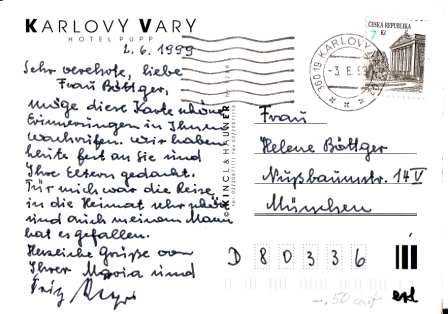 KARLOVY VARY
HOTEL PUPP
2. 6. 1999
Sehr verehrte, liebe
Frau Böttger,
möge diese Karte schöne
Erinnerungen in Ihnen
wachrufen. Wir haben
heute fest an Sie und
Ihre Eltern gedacht.
Für mich war die Reise
in die Heimat sehr schön
und auch meinem Mann
hat es gefallen.
Herzliche Grüße von
Ihrer Maria und
Fritz
© KINCL & HAUNER
36019 KARLOVY
-3. 6. 9
ČESKÁ REPUBLIKA
7 Kč
Frau
Helene Böttger
Nußbaumstr. 14 V
München
D 80336